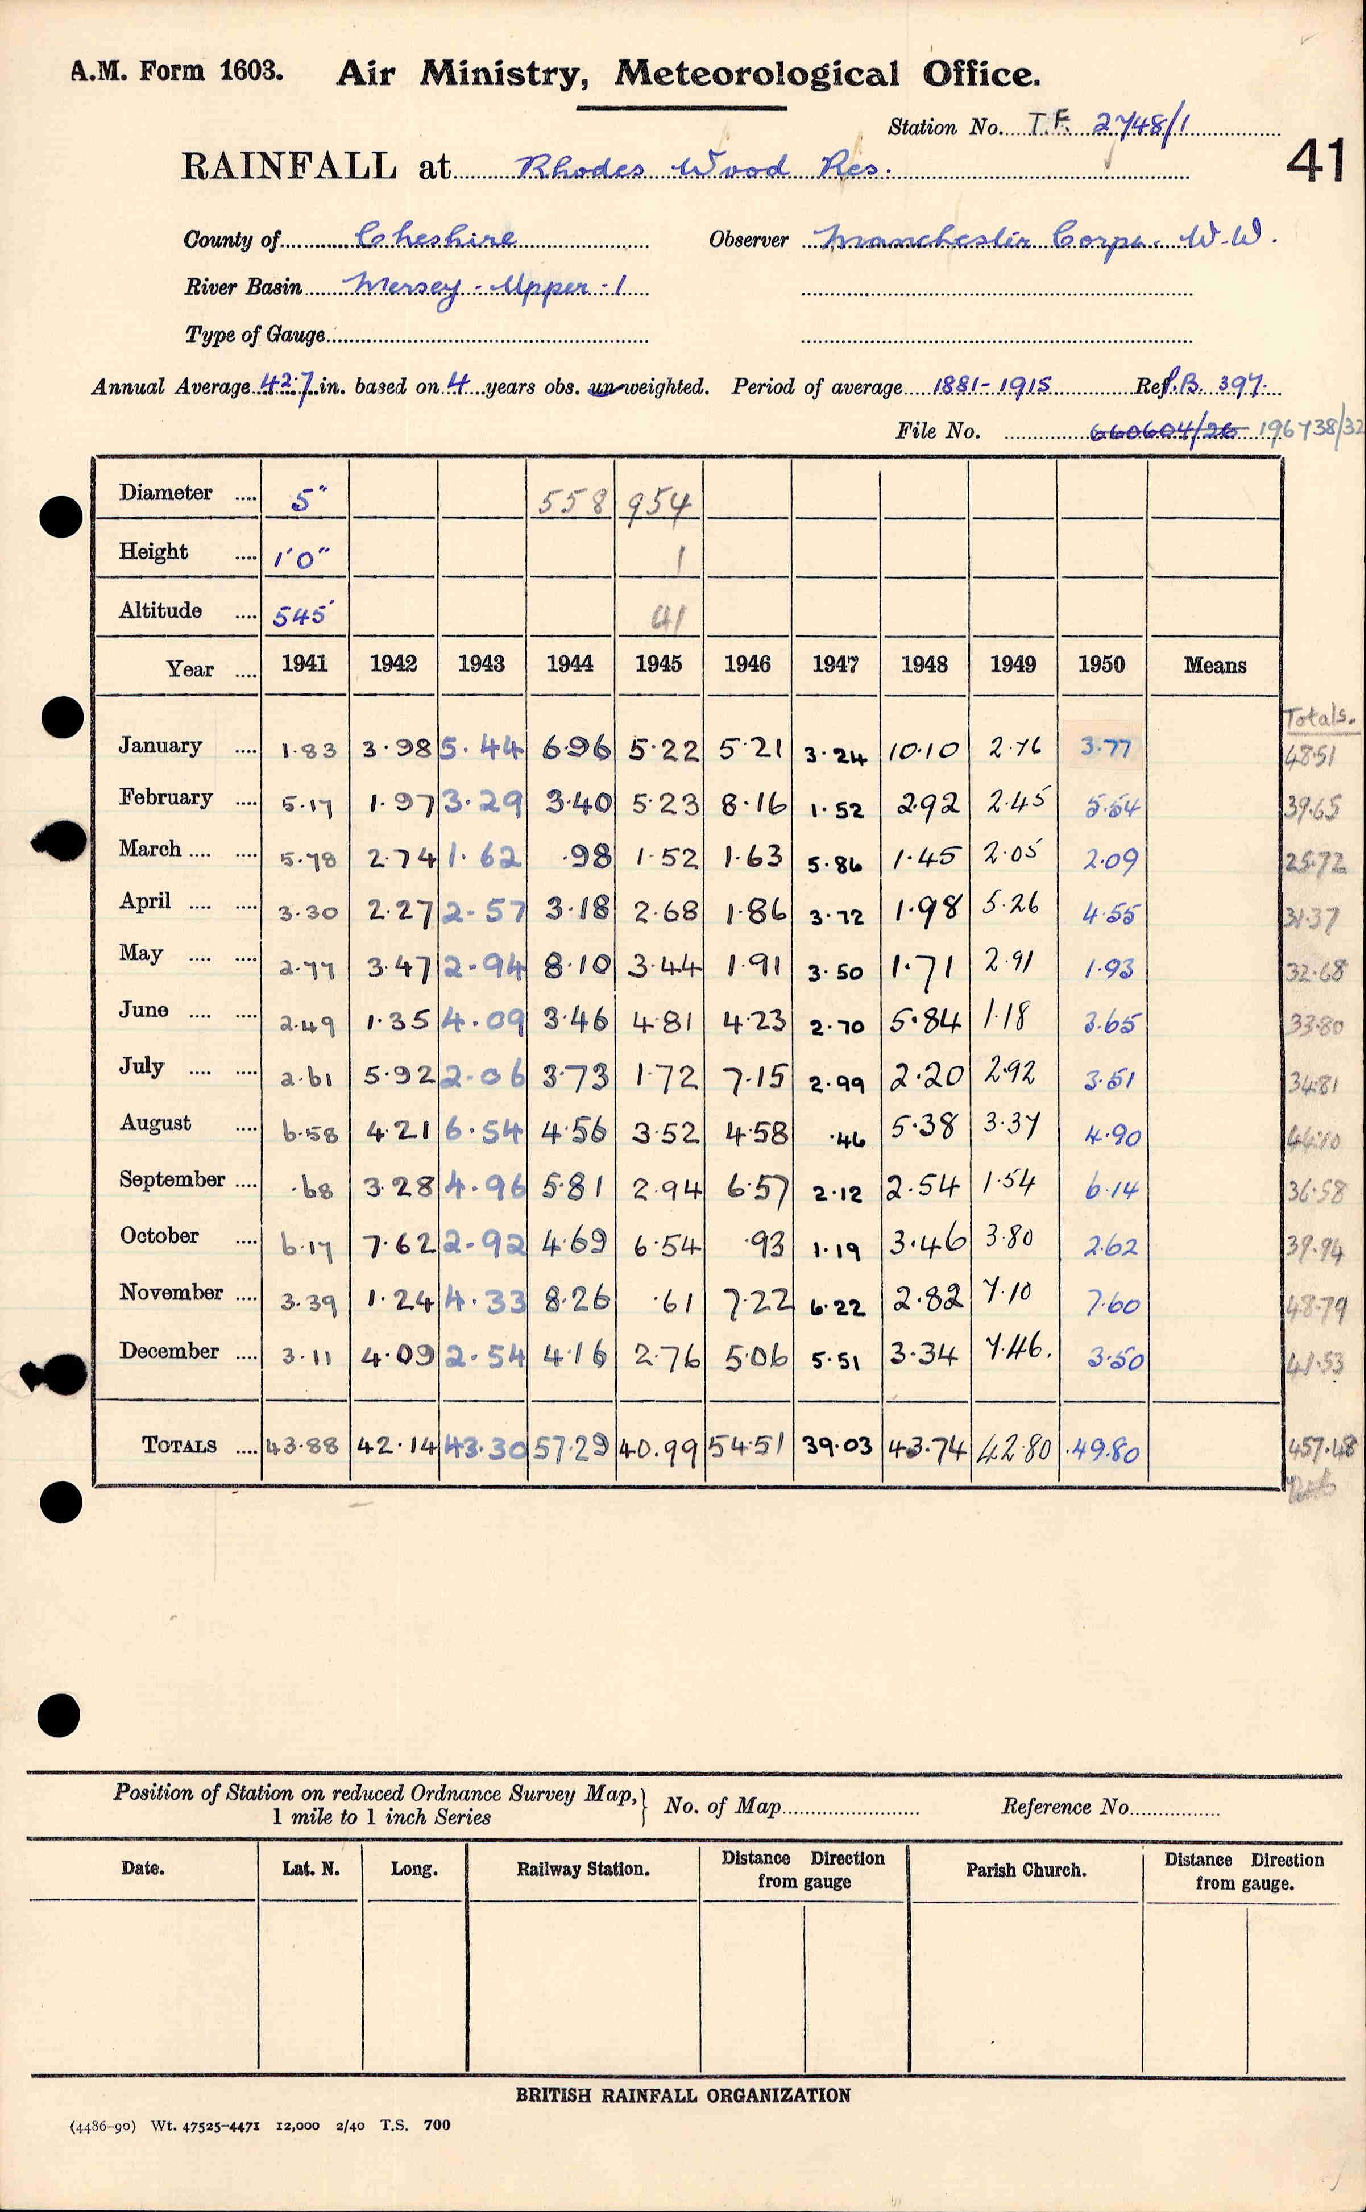 A.M. Form 1603. Air Ministry, Meteorological Office.
Station No. T.F. 2748/1
41
RAINFALL at Rhodes Wood Res.
County of Cheshire Observer Manchester Corpn. W.W.
River Basin Mersey - Upper - 1
Type of Gauge
Annual Average 42.7 in. based on 4 years obs. un-weighted. Period of average 1881-1915 Ref. B. 397.
File No. 660604/26 196738/32
Diameter .... 5" 558 954
Height .... 1'0" 1
Altitude .... 545' 41
Year .... 1941 1942 1943 1944 1945 1946 1947 1948 1949 1950 Means
Totals.
January .... 1.83 3.98 5.44 6.96 5.22 5.21 3.24 10.10 2.76 3.77 48.51
February .... 5.17 1.97 3.29 3.40 5.23 8.16 1.52 2.92 2.45 5.54 39.65
March .... .... 5.78 2.74 1.62 .98 1.52 1.63 5.86 1.45 2.05 2.09 25.72
April .... .... 3.30 2.27 2.57 3.18 2.68 1.86 3.72 1.98 5.26 4.55 31.37
May .... .... 2.77 3.47 2.94 8.10 3.44 1.91 3.50 1.71 2.91 1.93 32.68
June .... .... 2.49 1.35 4.09 3.46 4.81 4.23 2.70 5.84 1.18 3.65 33.80
July .... .... 2.61 5.92 2.06 3.73 1.72 7.15 2.99 2.20 2.92 3.51 34.81
August .... 6.58 4.21 6.54 4.56 3.52 4.58 .46 5.38 3.37 4.90 44.10
September .... .68 3.28 4.96 5.81 2.94 6.57 2.12 2.54 1.54 6.14 36.58
October .... 6.17 7.62 2.92 4.69 6.54 .93 1.19 3.46 3.80 2.62 39.94
November .... 3.39 1.24 4.33 8.26 .61 7.22 6.22 2.82 7.10 7.60 48.79
December .... 3.11 4.09 2.54 4.16 2.76 5.06 5.51 3.34 7.46. 3.50 41.53
TOTALS .... 43.88 42.14 43.30 57.29 40.99 54.51 39.03 43.74 42.80 49.80 457.48
Position of Station on reduced Ordnance Survey Map, 1 mile to 1 inch Series } No. of Map Reference No.
Date. Lat. N. Long. Railway Station. Distance Direction from gauge Parish Church. Distance Direction from gauge.
BRITISH RAINFALL ORGANIZATION
(4486-90) Wt. 47525-4471 12,000 2/40 T.S. 700